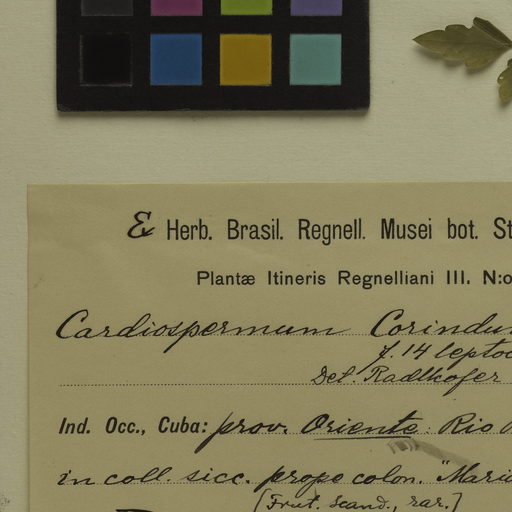 & Herb. Brasil. Regnell. Musei bot. St
Plantæ Itineris Regnelliani III. N:o
Cardiospermum Corindu
f. 14 leptoc
Det. Radlkofer
Ind. Occ., Cuba: prov. Oriente: Rio
in coll. sicc. prope colon. "Maria
[Frut. scand., rar.]